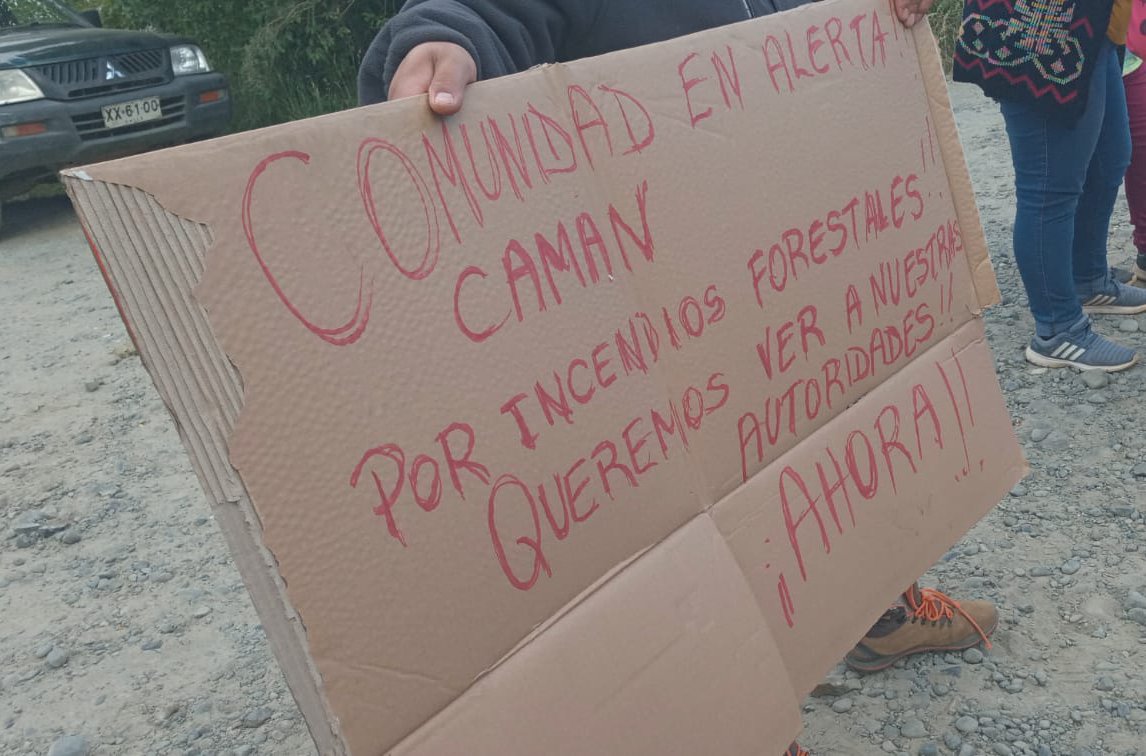 XX·61·00
COMUNIDAD EN ALERTA!!
CAMAN
POR INCENDIOS FORESTALES!!
QUEREMOS VER A NUESTRAS
AUTORIDADES!!
¡¡AHORA!!